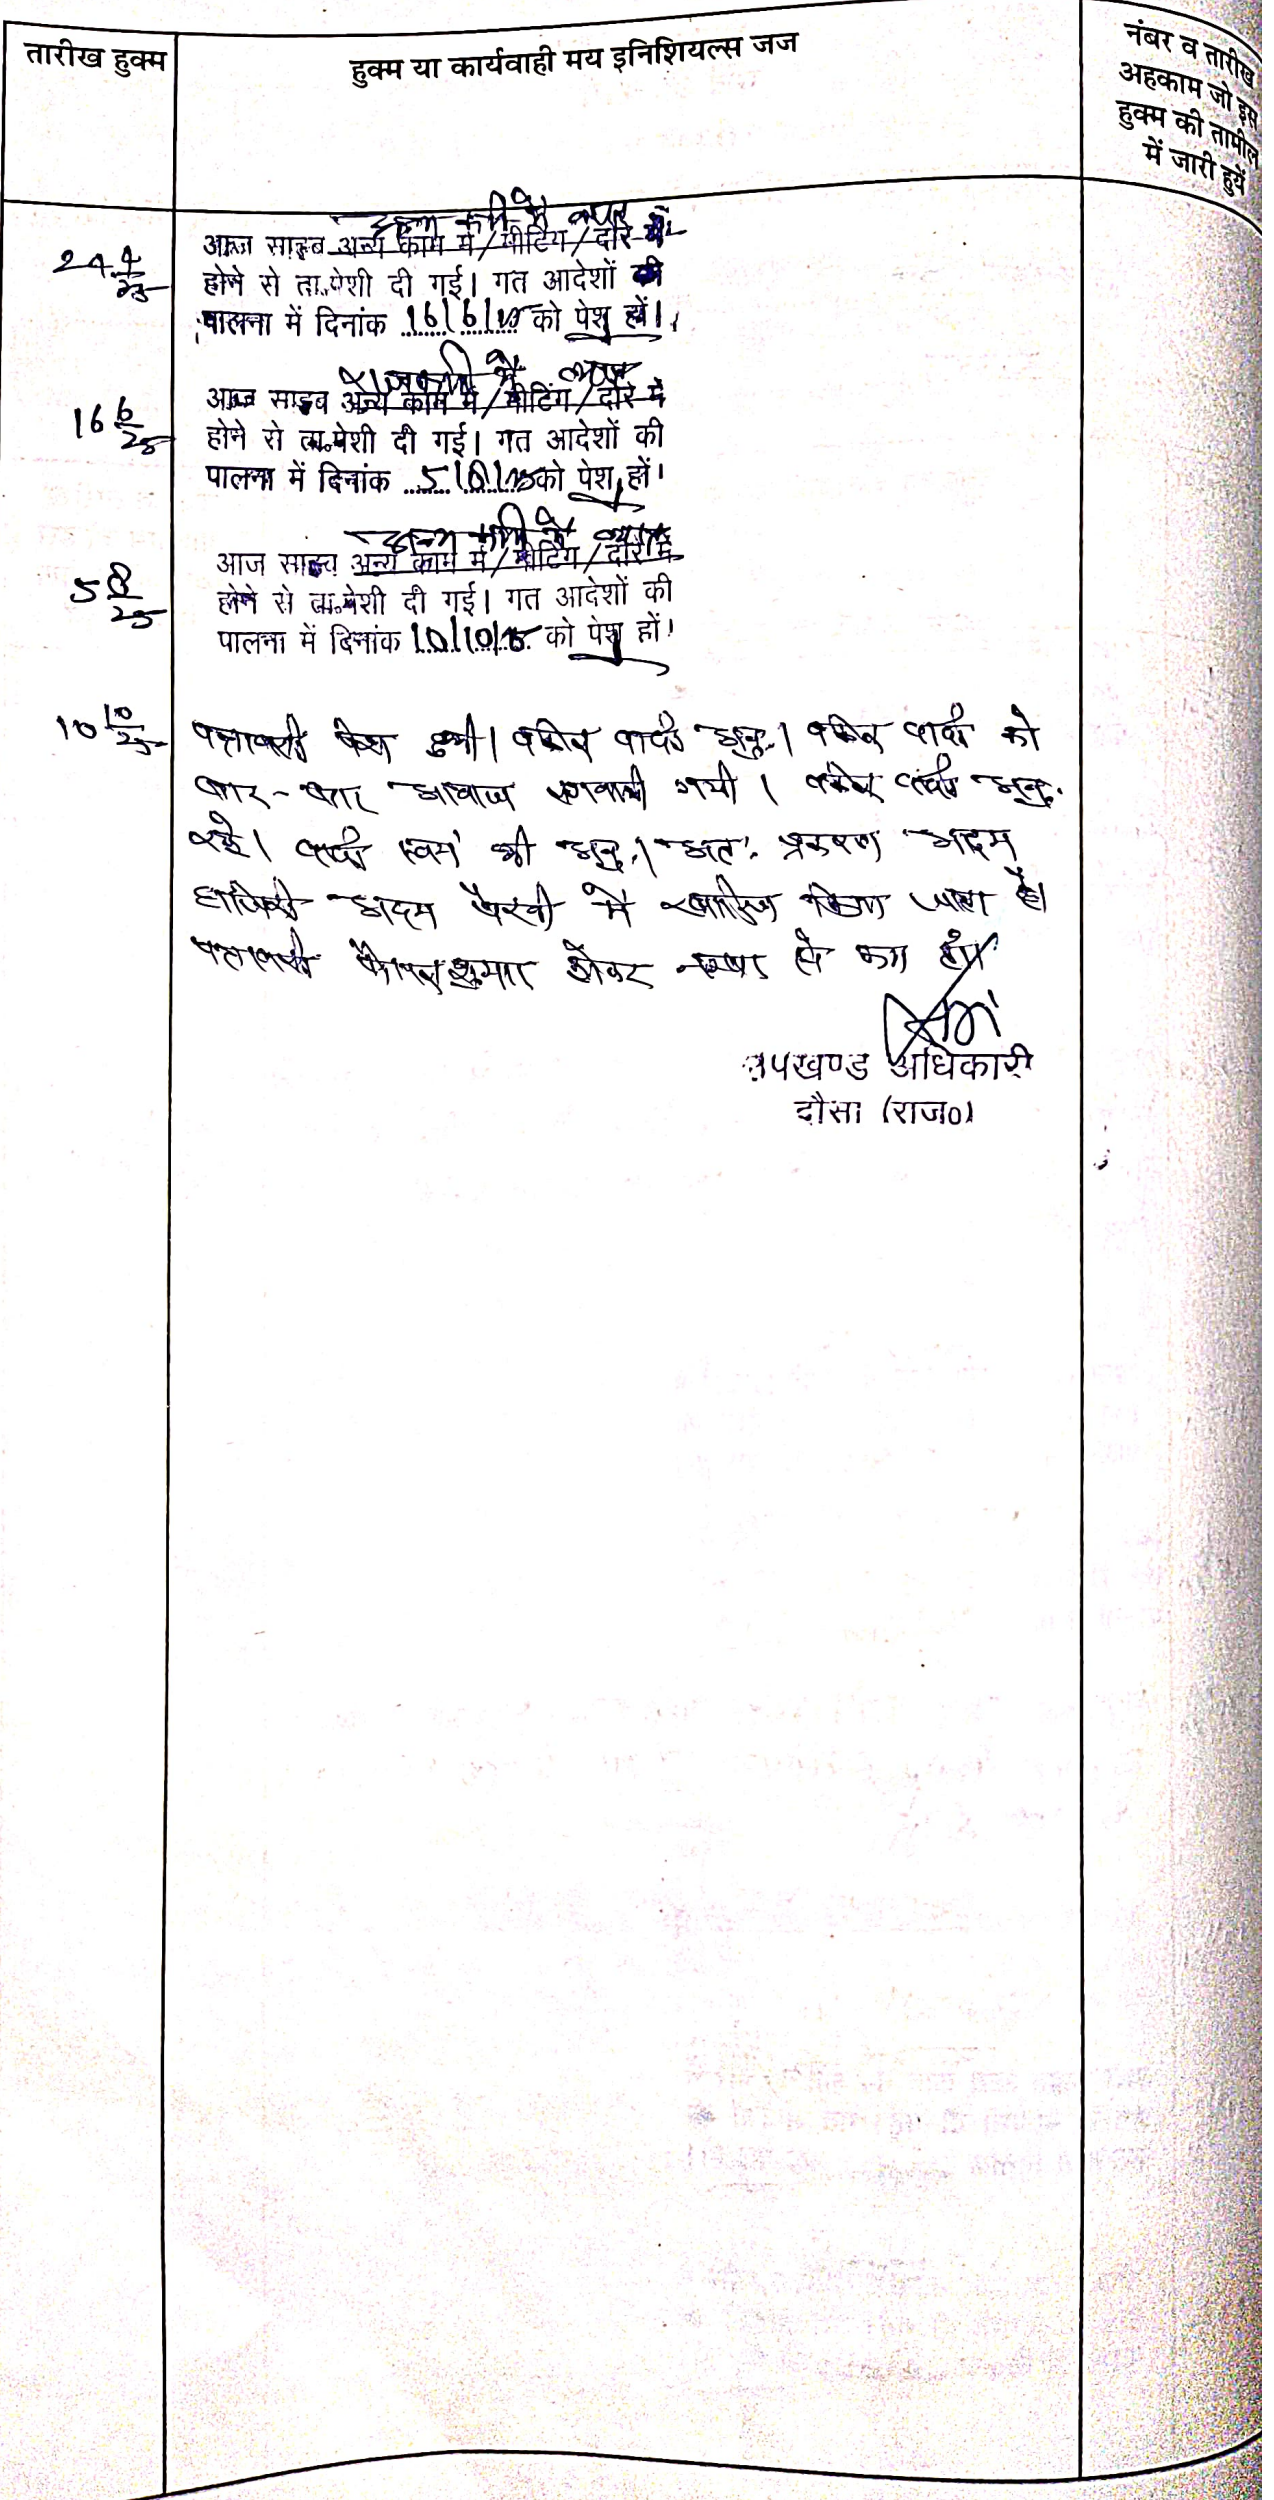 तारीख हुक्म
हुक्म या कार्यवाही मय इनिशियल्स जज
नंबर व तारीख
अहकाम जो इस
हुक्म की तामील
में जारी हुयें
24 4/25
आज साहब अन्य काम में/मीटिंग/दौरे में
होने से ता.पेशी दी गई। गत आदेशों की
पालना में दिनांक 16/6/25 को पेश हों।
16 6/25
आज साहब अन्य काम में/मीटिंग/दौरे में
होने से ता.पेशी दी गई। गत आदेशों की
पालना में दिनांक 5/8/25 को पेश हों।
5 8/25
आज साहब अन्य काम में/मीटिंग/दौरे में
होने से ता.पेशी दी गई। गत आदेशों की
पालना में दिनांक 10/10/25 को पेश हों।
10 10/25
पत्रावली पेश हुयी। वकील वादी अनु.। वकील वादी को
बार-बार आवाज लगवायी गयी। वकील वादी अनु.
रहे। वादी स्वयं भी अनु.। अतः प्रकरण अदम
हाजिरी अदम पैरवी में खारिज किया जाता है।
पत्रावली फैसल शुमार होकर नम्बर से कम हो।
उपखण्ड अधिकारी
दौसा (राज०)